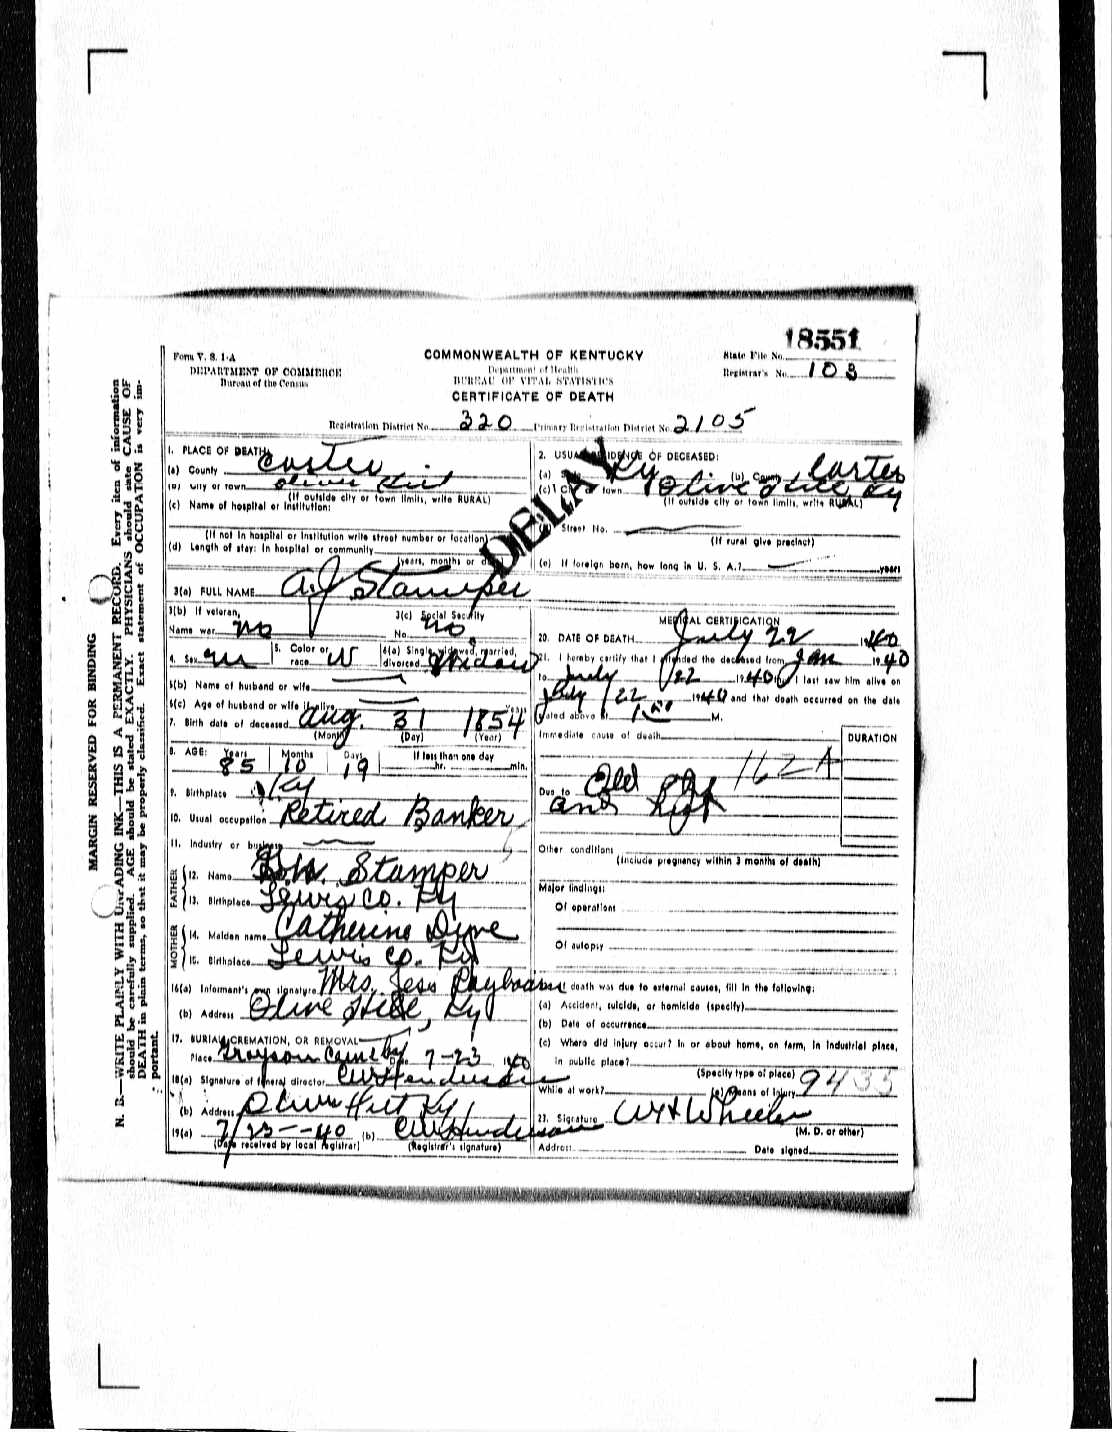 18551
Form V. S. 1-A
COMMONWEALTH OF KENTUCKY
State File No.
DEPARTMENT OF COMMERCE
Department of Health
Registrar's No. 103
Bureau of the Census
BUREAU OF VITAL STATISTICS
CERTIFICATE OF DEATH
Registration District No. 320 Primary Registration District No. 2105
DELAY
1. PLACE OF DEATH:
(a) County Carter
(b) City or town Olive Hill
(If outside city or town limits, write RURAL)
(c) Name of hospital or institution:
(If not in hospital or institution write street number or location)
(d) Length of stay: In hospital or community
(years, months or days)
2. USUAL RESIDENCE OF DECEASED:
(a) Ky (b) County Carter
(c) City or town Olive Hill, Ky
(If outside city or town limits, write RURAL)
(d) Street No.
(If rural give precinct)
(e) If foreign born, how long in U. S. A.? years
3(a) FULL NAME A. J. Stamper
3(b) If veteran,
Name war no
3(c) Social Security
No. no.
4. Sex m
5. Color or
race W
6(a) Single, widowed, married,
divorced Widow
6(b) Name of husband or wife
6(c) Age of husband or wife if alive Years
7. Birth date of deceased Aug. 31 1854
(Month) (Day) (Year)
8. AGE: Years Months Days If less than one day
85 10 19 hr. min.
9. Birthplace Ky
10. Usual occupation Retired Banker
11. Industry or business
FATHER
12. Name Stamper
13. Birthplace Lewis Co. Ky
MOTHER
14. Maiden name Catherine
15. Birthplace Lewis Co. Ky
16(a) Informant's own signature Mrs. Jess
(b) Address Olive Hill, Ky
17. BURIAL, CREMATION, OR REMOVAL
Place Grayson Cemetery Date 7-23 1940
18(a) Signature of funeral director CW Henderson
(b) Address Olive Hill Ky
19(a) 7/23--40 (b) CW Henderson
(Date received by local registrar) (Registrar's signature)
MEDICAL CERTIFICATION
20. DATE OF DEATH July 22 1940
21. I hereby certify that I attended the deceased from Jan 1940
to July 22 1940, I last saw him alive on
July 22 1940 and that death occurred on the date
stated above at M.
Immediate cause of death
DURATION
Due to Old age 162A
and
Other conditions
(Include pregnancy within 3 months of death)
Major findings:
Of operations
Of autopsy
death was due to external causes, fill in the following:
(a) Accident, suicide, or homicide (specify)
(b) Date of occurrence
(c) Where did injury occur? In or about home, on farm, in industrial place,
in public place?
(Specify type of place) 9435
While at work? (e) Means of Injury
23. Signature Wheeler
(M. D. or other)
Address Date signed
MARGIN RESERVED FOR BINDING
N. B.—WRITE PLAINLY WITH UNFADING INK—THIS IS A PERMANENT RECORD. Every item of information
should be carefully supplied. AGE should be stated EXACTLY. PHYSICIANS should state CAUSE OF
DEATH in plain terms, so that it may be properly classified. Exact statement of OCCUPATION is very im-
portant.